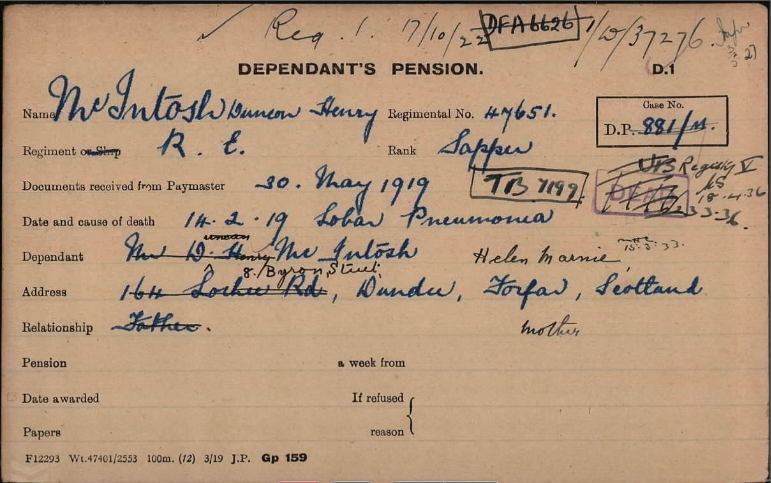 ✓ Req. 1. 17/10/22 DFA 6626 1/W/37276.
DEPENDANT'S PENSION. D.1
Name McIntosh Duncan Henry Regimental No. 47651. Case No.
Regiment or Ship R. E. Rank Sapper D.P. 881/M.
Documents received from Paymaster 30. May 1919 TB 7199 Registry V
18.4.36
Date and cause of death 14.2.19 Lobar Pneumonia 23.3.36.
Dependant Mr D. Henry McIntosh Helen Marnie
8. Byron Street,
Address 164 Lochee Rd, Dundee, Forfar, Scotland
Relationship Father. Mother
Pension a week from
Date awarded If refused
Papers reason
F12293 Wt.47401/2553 100m. (12) 3/19 J.P. Gp 159